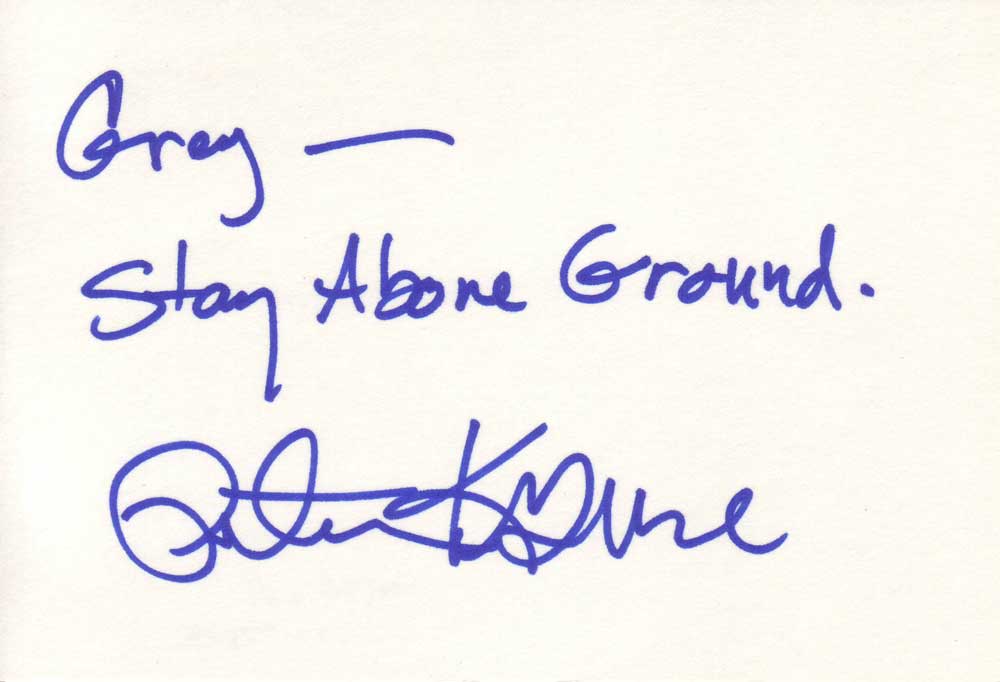 Greg —
Stay Above Ground.